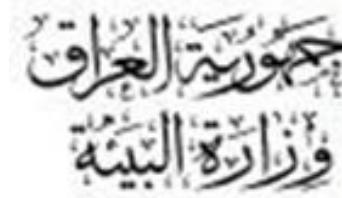 جمهورية العراق
وزارة البيئة